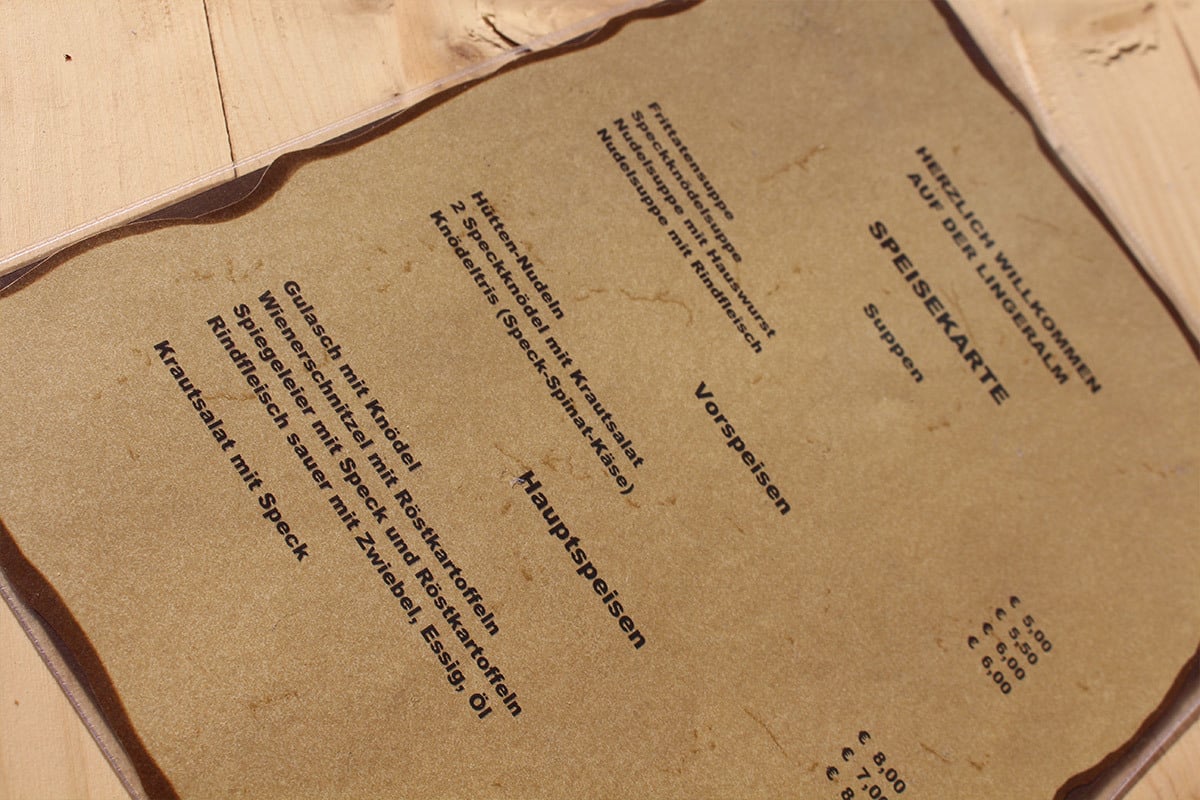 HERZLICH WILLKOMMEN
AUF DER LINGERALM
SPEISEKARTE
Suppen
Frittatensuppe € 5,00
Speckknödelsuppe € 5,50
Nudelsuppe mit Hauswurst € 6,00
Nudelsuppe mit Rindfleisch € 6,00
Vorspeisen
Hütten-Nudeln € 8,00
2 Speckknödel mit Krautsalat € 7,00
Knödeltris (Speck-Spinat-Käse) € 8
Hauptspeisen
Gulasch mit Knödel
Wienerschnitzel mit Röstkartoffeln
Spiegeleier mit Speck und Röstkartoffeln
Rindfleisch sauer mit Zwiebel, Essig, Öl
Krautsalat mit Speck